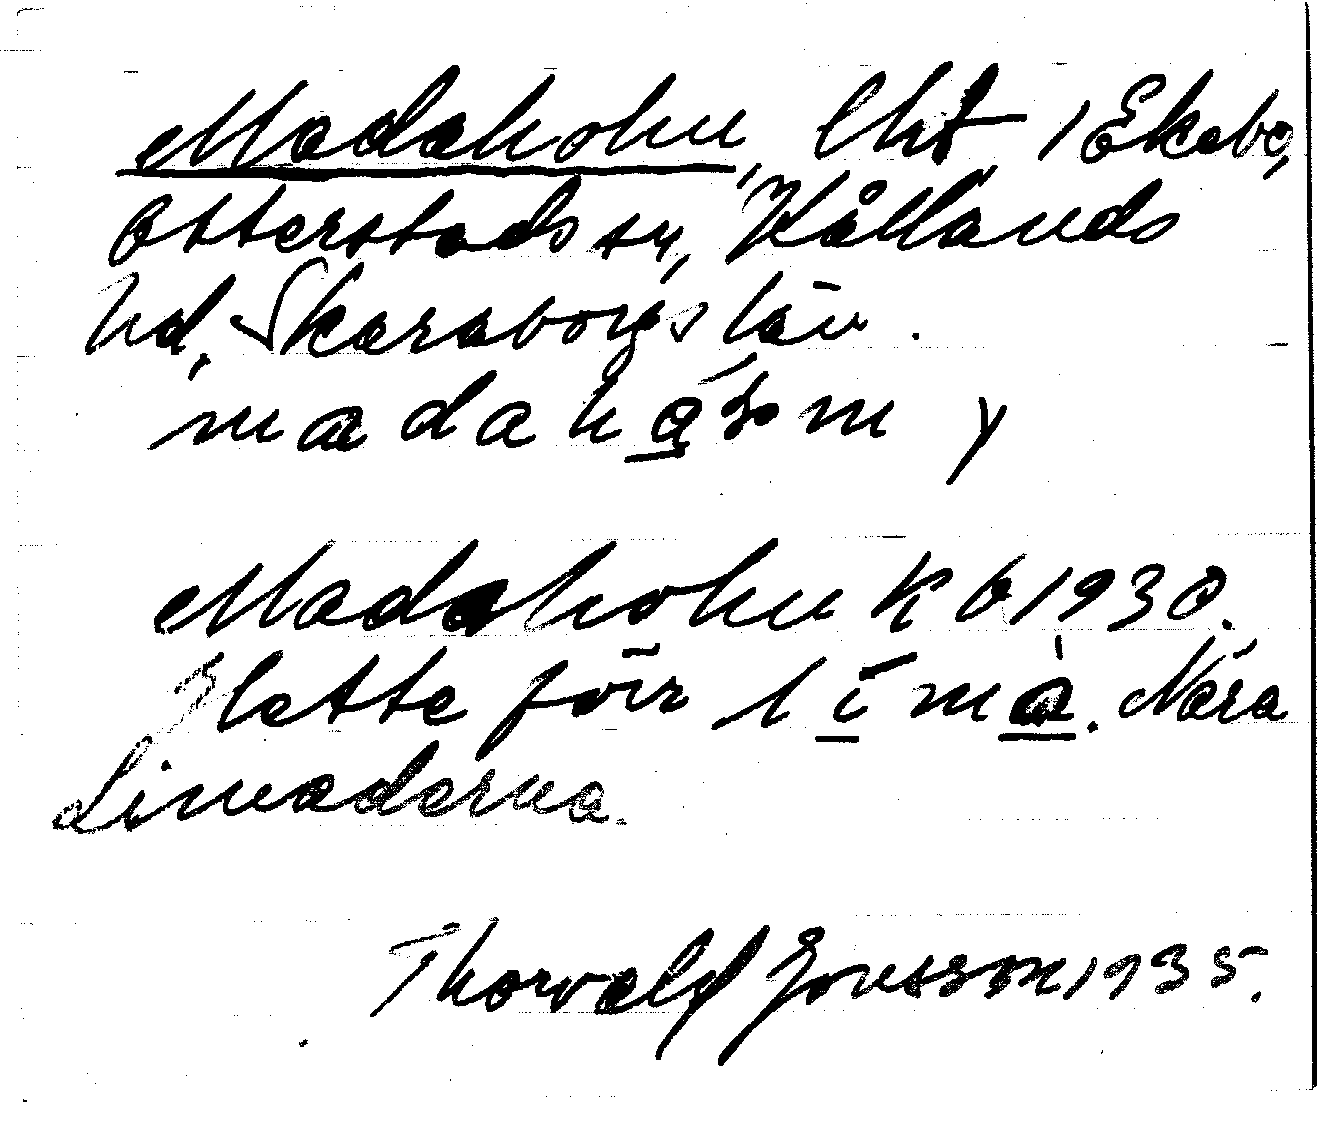 Madaholm, lht i Ekebo,
Otterstads sn, Kållands
hd. Skaraborgs län.
Madaholm K b 1930.
Slette för līmà. Nära
Limaderna.
Thorvald Jonsson 1935.